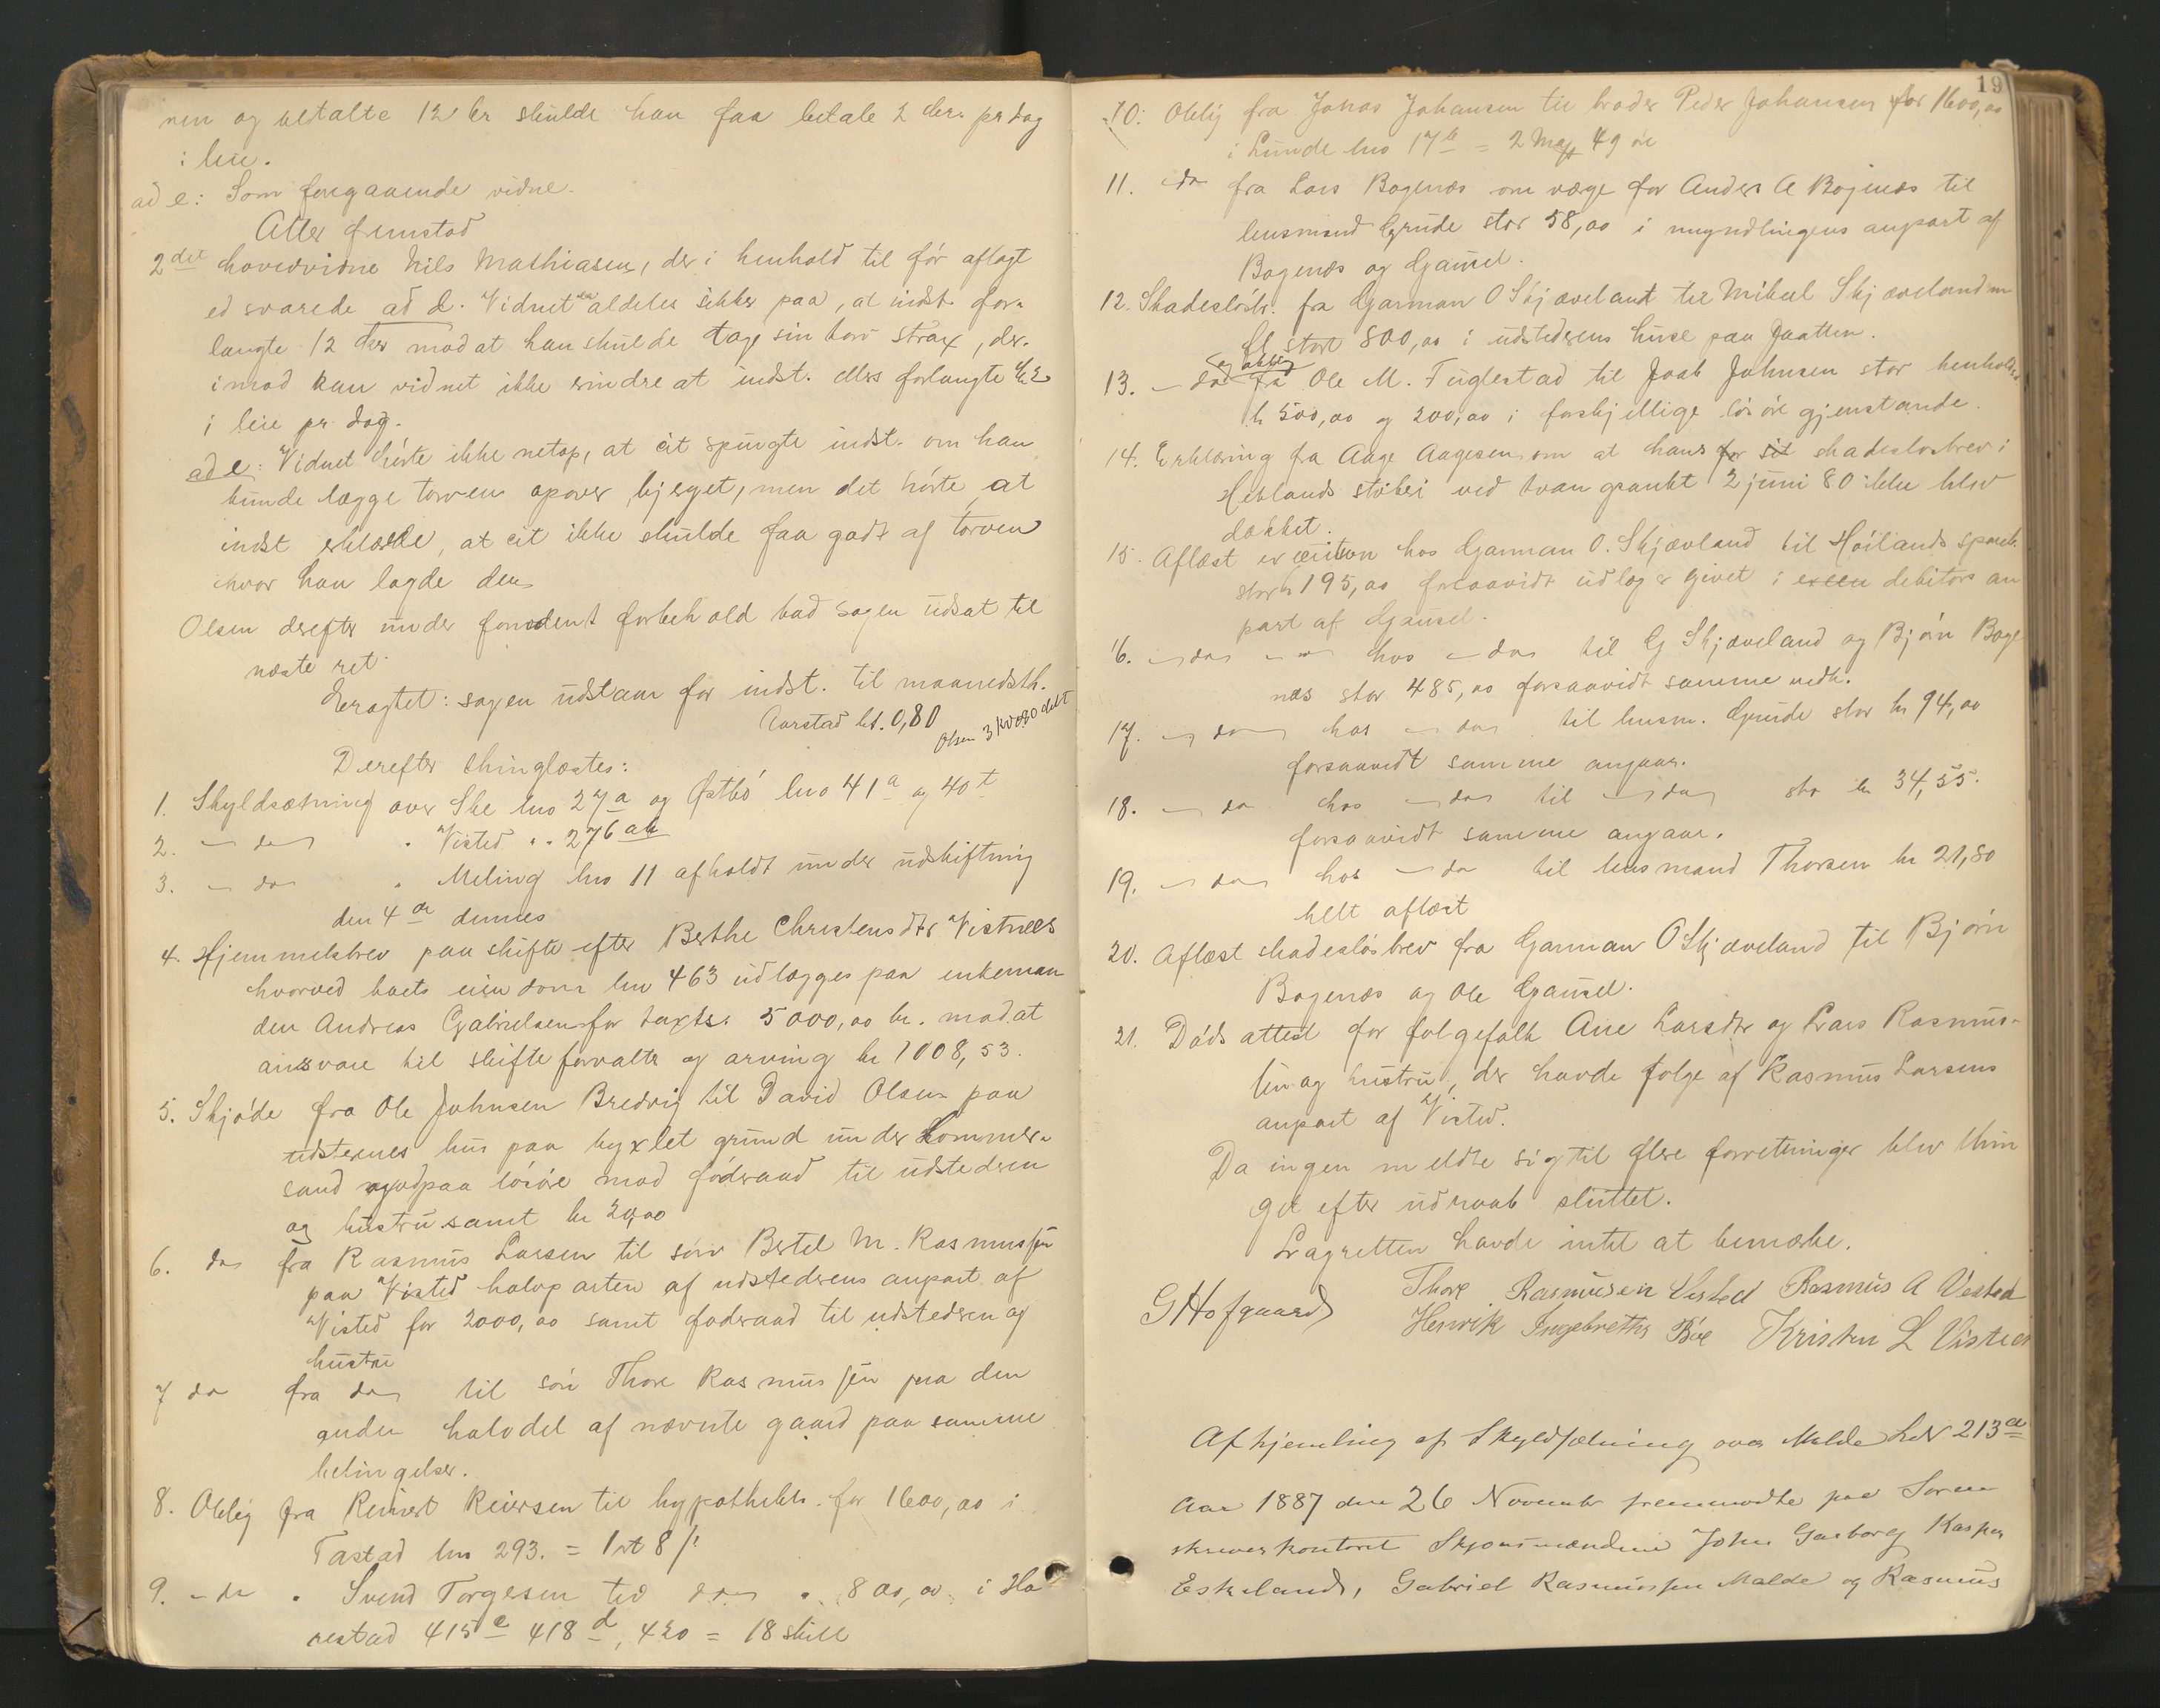 nen og betalte 12 kr skulde han faa betale 2 kr. pr dag
i leie.
ad e: Som foregaaende vidne.
Atter fremstod
2det hovedvidne Nils Mathiasen, der i henhold til før aflagt
ed svarede ad d. Vidnet er aldeles sikker paa, at indst. for-
langte 12 kr mod at han skulde tage sin torv strax, der-
imod kan vidnet ikke erindre at indst. ellers forlangte kr 2
i leie pr. dag.
ad e: Vidnet hørte ikke netop, at cit spurgte indst. om han
kunde lægge torven opover bjerget, men det hørte at
indst erklærede, at cit ikke skulde faa godt af torven
hvor han lagde den
Olsen derefter under forodent forbehold bad sagen udsat til
næste ret.
Eragtet: sagen udstaar for indst. til maanedsth.
Aarstad bt. 0,80
Olsen 3 kr 0.80 delt
Derefter thinglæstes:
1. Skyldsætning over Ske lno 27a og Østbø lno 41a og 40t
2. - do - " Visted " " 276 ab
3. - do " Meling lno 11 afholdt under udskiftning
den 4de dennes
4. Hjemmelsbrev paa skifte efter Berthe Christensdtr Vistnes
hvorved boets eiendom lno 463 udlægges paa enkeman
den Andreas Gabrielsen for taxts. 5000,00 kr. mod at
ansvare til skifteforvalter og arving kr 1008,53.
5. Skjøde fra Ole Johnsen Bredvig til David Olsen paa
udsternes hus paa byxlet grund under Sommer-
sand og paa løsøre mod føderaad til udstederen
og hustru samt kr 20,00
6. do fra Rasmus Larsen til søn Bertel M. Rasmussen
paa Visted halvparten af udstederens anpart af
Visted for 2000,00 samt føderaad til udstederen og
hustru
7 do fra do til søn Thore Rasmussen paa den
anden halvdel af nævnte gaard paa samme
betingelser.
8. Oblig fra Reinert Reiersen til hypothekb. for 1600,00 i
Tastad lno 293. = 1 ort 8 s
9. - do " Svend Torgesen til do " 800,00 i Ha
restad 415c 418d, 420 = 18 skill
19
10. Oblig fra Jonas Johansen til broder Peder Johansen for 1600,00
i Lunde lno 17b = 2 Mark 49 øre
11. do fra Lars Bogenæs om værge for Anders A Bogenæs til
lensmand Grude stor 58,00 i myndlingens anpart af
Bogenæs og Gausel.
12. Skadesløsbr. fra Garman O Skjæveland til Mikal Skjæveland m
fl. stort 800,00 i udstederens huse paa Jaatten.
13. - do og oblig fra Ole M. Tuglestad til Joab Johnsen stor henholdsv
kr 500,00 og 200,00 i forskjellige løsøre gjenstande.
14. Erklæring fra Aage Aagesen om at hans for sit skadesløsbrev i
Hetlands støberi ved tvangsaukt 2 juni 80 ikke blev
dækket.
15. Aflæst execution hos Garman O. Skjævland til Høilands spareb.
stor kr 195,00 forsaavidt udlæg er givet i exseu debitors an
part af Gausel.
16. - do - - hos - do til G Skjæveland og Bjørn Boge
næs stor 485,00 forsaavidt samme vedk.
17. - do - hos - do til lensm. Grude stor kr 94,00
forsaavidt samme angaar.
18. - do hos - do til - do stor kr 34,55.
forsaavidt samme angaar.
19. - do hos - do til lensmand Thorsen kr 21,80
helt aflæst
20. Aflæst skadesløsbrev fra Garman O Skjæveland til Bjørn
Bogenæs og Ole Gausel.
21. Dødsattest for folgefolk Ane Larsdtr og Lars Rasmus-
sen og hustru, der havde folge af Rasmus Larsens
anpart af Visted.
Da ingen meldte sig til flere forretninger blev thin
get efter udraab sluttet.
Lagretten havde intet at bemærke.
GHofgaard
Thore Rasmusen Visted Rasmus A Visted
Henrik Ingebretsen Bøe Kristen L Visted
Afhjemling af Skyldsætning over Malde LNr 213a
Aar 1887 den 26 November fremmødte paa Soren
skriverkontoret Skjønsmændene John Garborg Kasper
Eskeland, Gabriel Rasmussen Malde og Rasmus